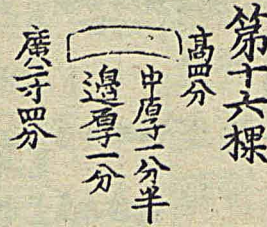 第十六棵
高四分
中厚一分半
邊厚一分
廣二寸四分